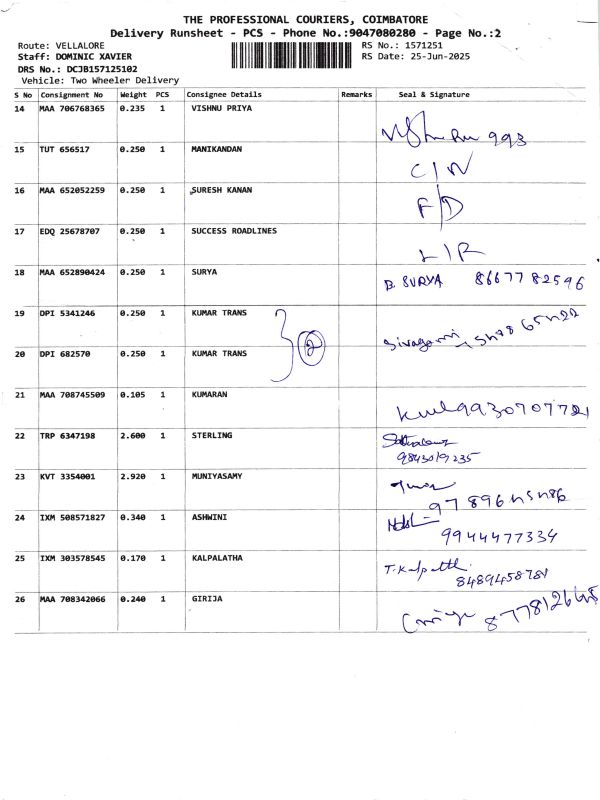 THE PROFESSIONAL COURIERS, COIMBATORE
Delivery Runsheet - PCS - Phone No.:9047080280 - Page No.:2
Route: VELLALORE RS No.: 1571251
Staff: DOMINIC XAVIER RS Date: 25-Jun-2025
DRS No.: DCJB157125102
Vehicle: Two Wheeler Delivery
S No Consignment No Weight PCS Consignee Details Remarks Seal & Signature
14 MAA 706768365 0.235 1 VISHNU PRIYA
15 TUT 656517 0.250 1 MANIKANDAN C/N
16 MAA 652052259 0.250 1 SURESH KANAN F/D
17 EDQ 25678707 0.250 1 SUCCESS ROADLINES L/R
18 MAA 652890424 0.250 1 SURYA B. SURYA 8667782596
19 DPI 5341246 0.250 1 KUMAR TRANS
2
Sivagami
20 DPI 682570 0.250 1 KUMAR TRANS
21 MAA 708745509 0.105 1 KUMARAN 9930707721
22 TRP 6347198 2.600 1 STERLING
9843019235
23 KVT 3354001 2.920 1 MUNIYASAMY
24 IXM 508571827 0.340 1 ASHWINI
9944477334
25 IXM 303578545 0.170 1 KALPALATHA T. Kalpalth
8489458781
26 MAA 708342066 0.240 1 GIRIJA